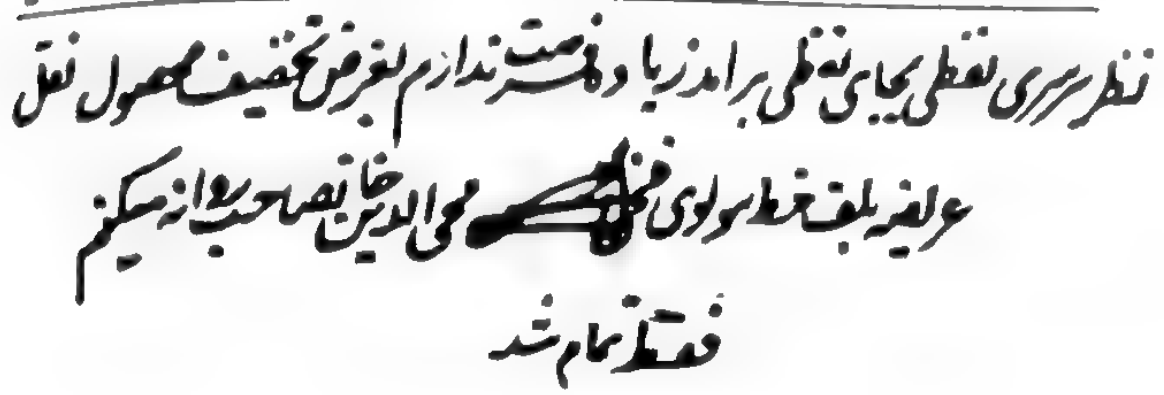 نظر سرسری لفظی بجای لفظی برآمد زیا وفرصت ندارم بغرض تخفیف محصول نقل
عریضه بلف خط مولوی محی الدین خانصاحب روانه میکنم
فقط تمام شد